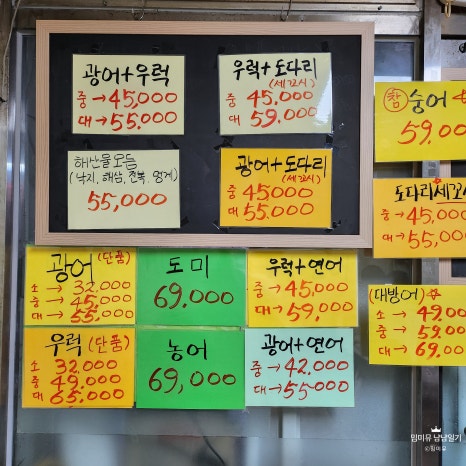 광어+우럭
중→45,000
대→55.000
우럭+도다리
(세꼬시)
중 45,000
대 59,000
해산물모듬
(낙지, 해삼, 전복, 멍게)
55,000
광어+도다리
(세꼬시)
중 45,000
대 55.000
참 숭어
59.000
도다리세꼬시
중→45,000
대→55,000
광어(단품)
소→32.000
중→45,000
대→55,000
도미
69,000
우럭+연어
중→45,000
대→59,000
(대방어)
소→49,000
중→59.000
대→69.000
우럭(단품)
소 32.000
중 49,000
대 65,000
농어
69,000
광어+연어
중→42,000
대→55-000
임미뮤 냠냠일기
ⓒ임미뮤